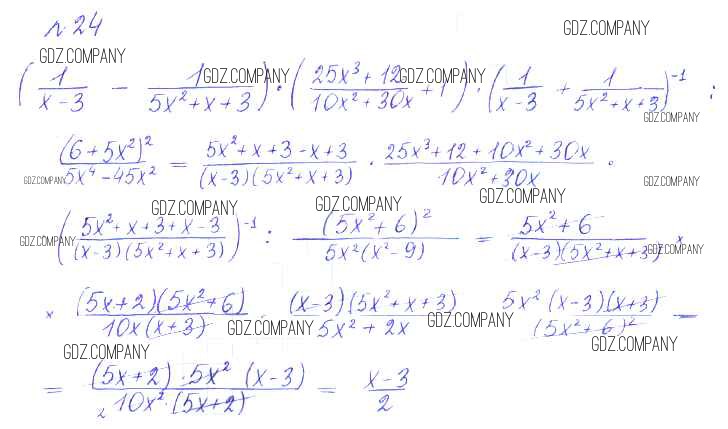 л. 24
GDZ.COMPANY GDZ.COMPANY
(1/(x-3) - 1/(5x²+x+3)) · ((25x³+12)/(10x²+30x) + 1) · (1/(x-3) + 1/(5x²+x+3))⁻¹ :
GDZ.COMPANY GDZ.COMPANY GDZ.COMPANY
(6+5x²)²/(5x⁴-45x²) = (5x²+x+3-x+3)/((x-3)(5x²+x+3)) · (25x³+12+10x²+30x)/(10x²+30x) ·
GDZ.COMPANY GDZ.COMPANY
GDZ.COMPANY GDZ.COMPANY GDZ.COMPANY
((5x²+x+3+x-3)/((x-3)(5x²+x+3)))⁻¹ : (5x²+6)²/(5x²(x²-9)) = (5x²+6)/((x-3)(5x²+x+3)) ×
GDZ.COMPANY GDZ.COMPANY
× (5x+2)(5x²+6)/(10x(x+3)) · (x-3)(5x²+x+3)/(5x²+2x) 5x²(x-3)(x+3)/(5x²+6)² =
GDZ.COMPANY GDZ.COMPANY
GDZ.COMPANY GDZ.COMPANY
= (5x+2)·5x²(x-3)/(₂10x²·(5x+2)) = (x-3)/2